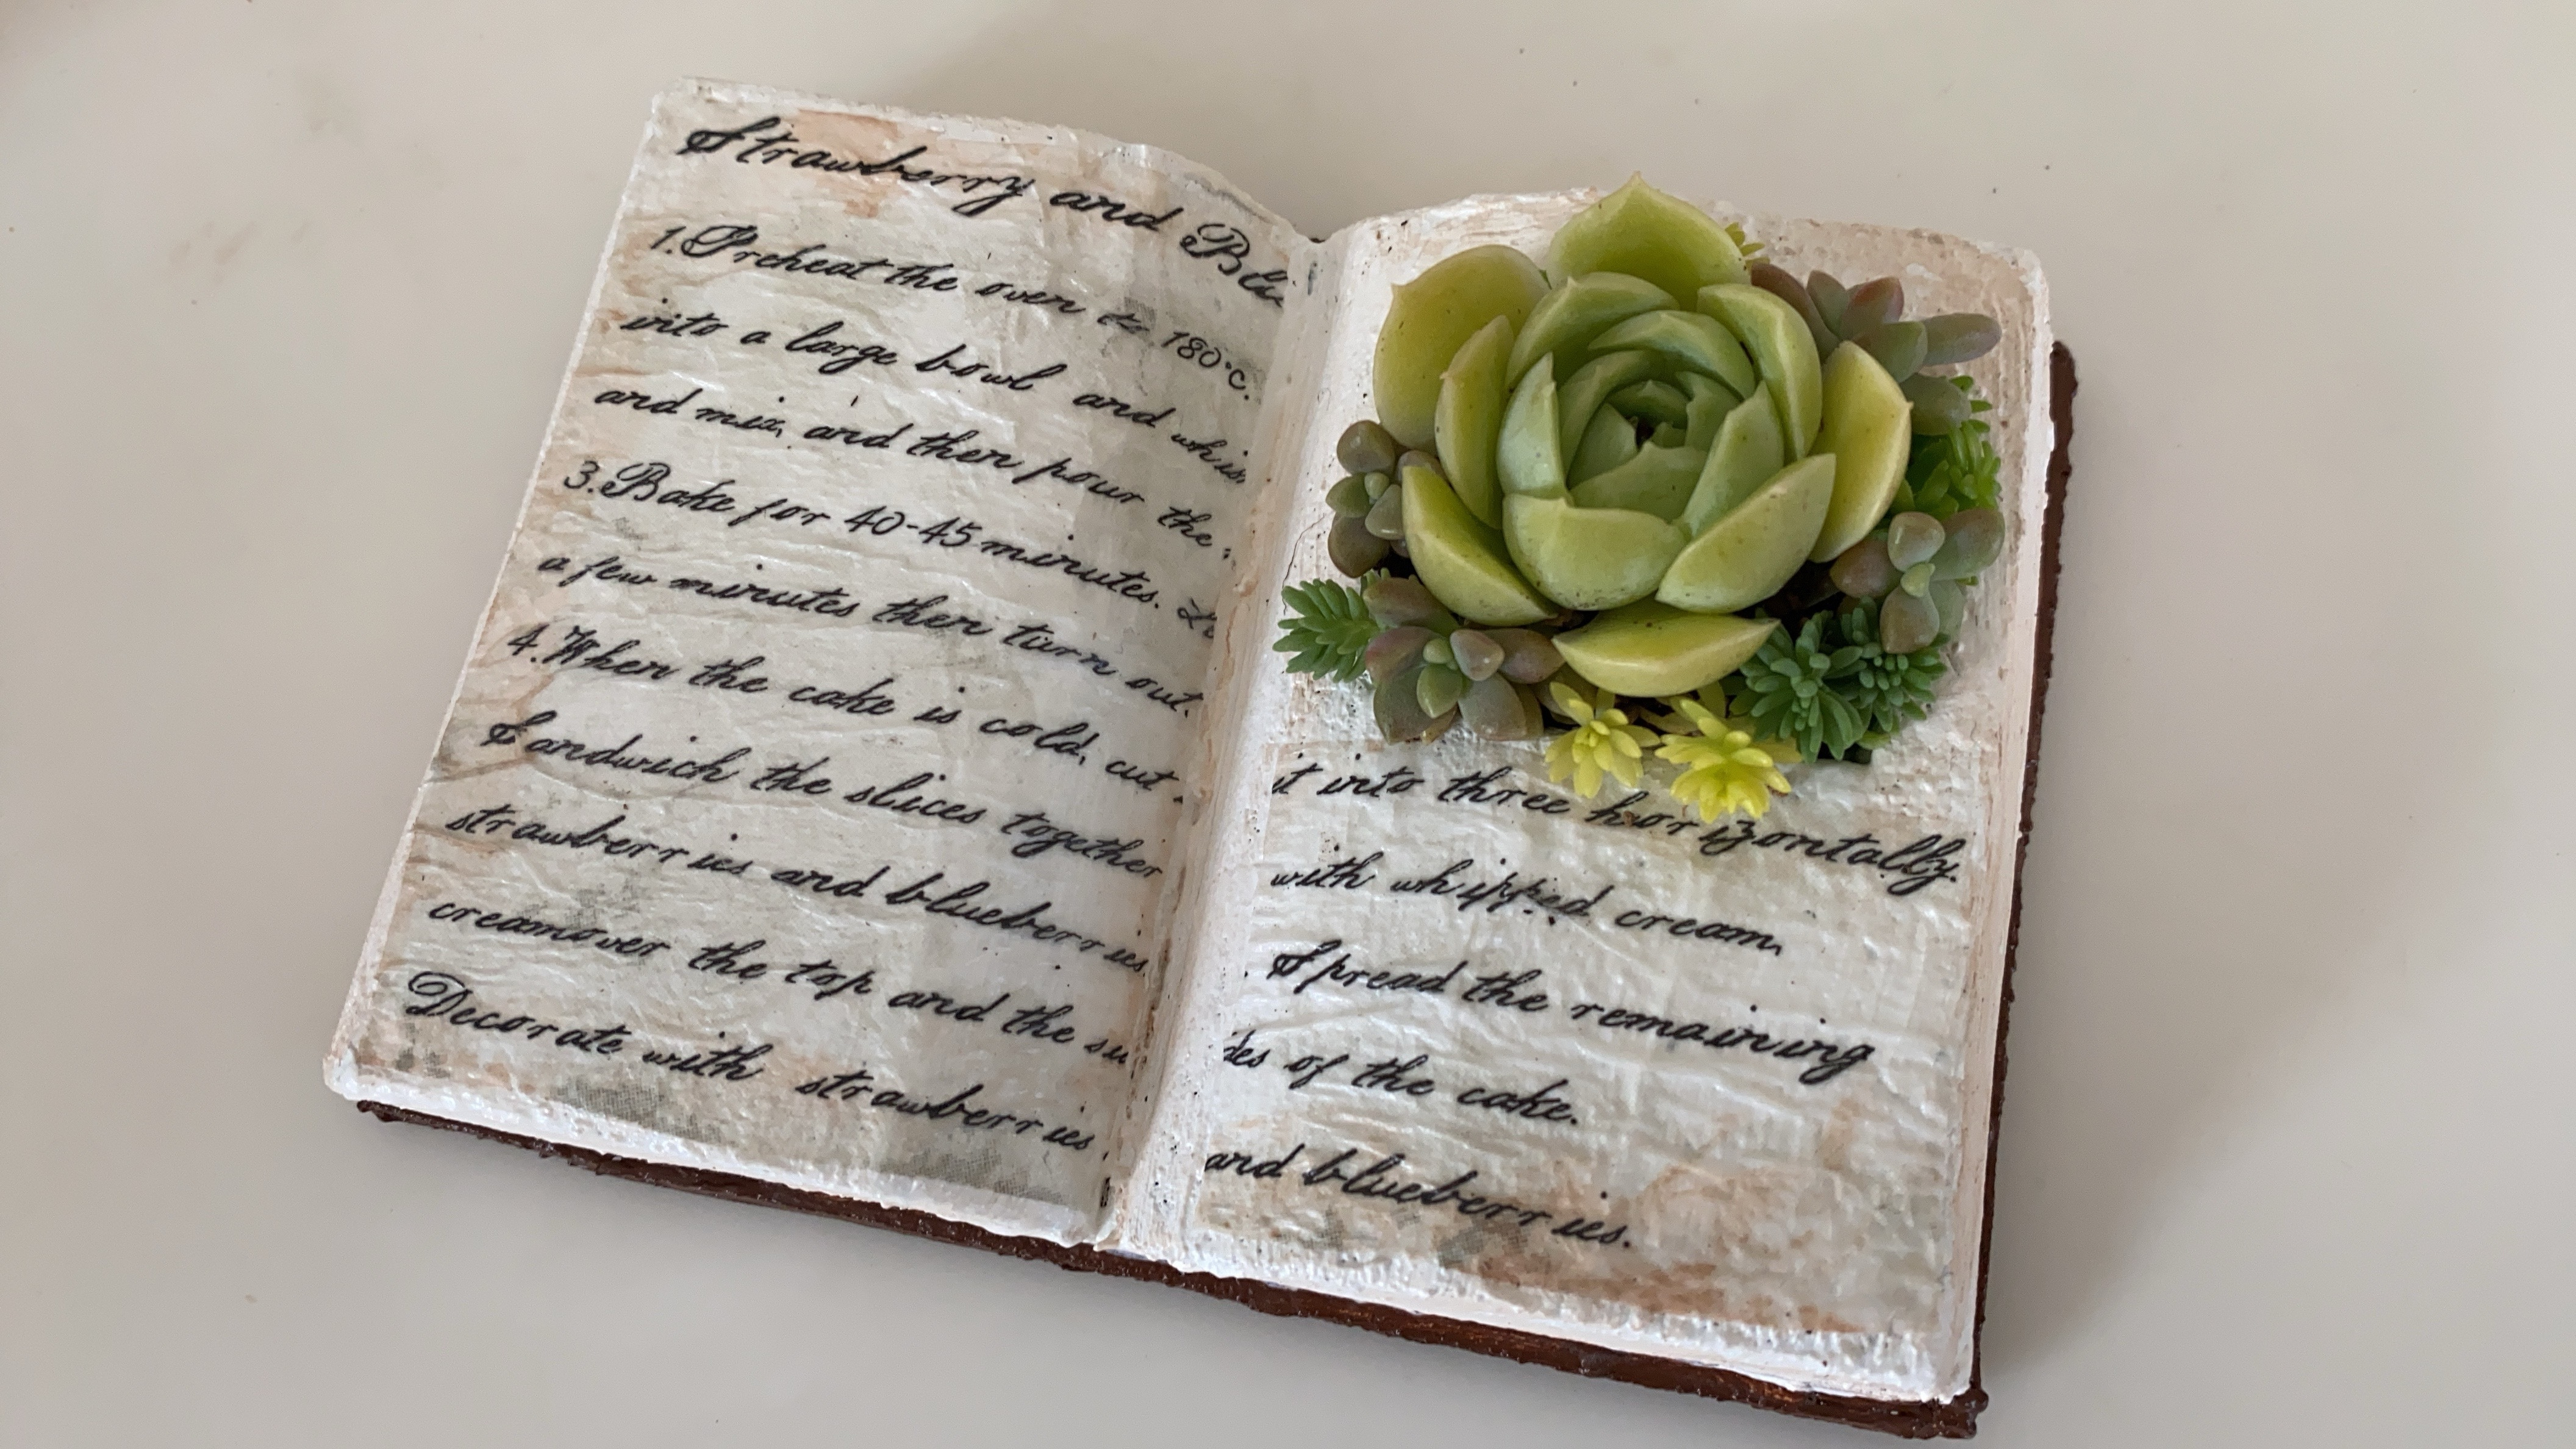 Strawberry and Blu
1. Preheat the oven to 180°c.
into a large bowl and whis
and mix, and then pour the
3. Bake for 40-45 minutes.
a few minutes then turn out.
4. When the cake is cold, cut
Sandwich the slices together
strawberries and blueberries
creamover the top and the su
Decorate with strawberries
it into three horizontally.
with whipped cream,
Spread the remaining
des of the cake.
and blueberries.